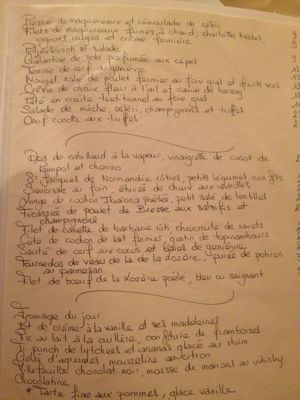 Pressé de maquereaux et rémoulade de céleri
Filets de maquereaux fumés, à chaud, charlotte tièdes
oignons rouges et crème fermière
et salade
Galantine de parfumée aux cèpes
Terrine de cerf au genièvre
Nougat salé de poulet fermier au foie gras et fruits secs
Crème de choux fleur à l'ail et caviar de hareng
Pâté en croûte traditionnel au foie gras
Salade de mâche, céleri, champignons et truffes
Oeuf cocotte aux truffes
Dos de cabillaud à la vapeur, vinaigrette de cocos de
Paimpol et chorizo
St Jacques de Normandie rôties, petits légumes
au foin, étuvée de choux aux
Longe de cochon Ibaïona poêlée, petit salé de lentilles
Fricassée de poulet de Bresse aux salsifis et
champignons
Filet de canette de barbarie rôti choucroute de navets
Côte de cochon de lait fermier gratin de topinambours
Sauté de cerf aux coco et baies de genièvre
Tournedos de veau de la de la Lozère, purée de potiron
au parmesan
Filet de boeuf de la Lozère poêlé, bleu ou saignant
Fromage du jour
de crème à la vanille et ses madeleines
au lait à la cuillère, confiture de framboises
punch de lytchees et ananas glace au rhum
Gelée d'agrumes, mousseline au citron
Millefeuilles chocolat noir, mousse de marrons au whisky
Chocolatine
* Tarte fine aux pommes, glace vanille